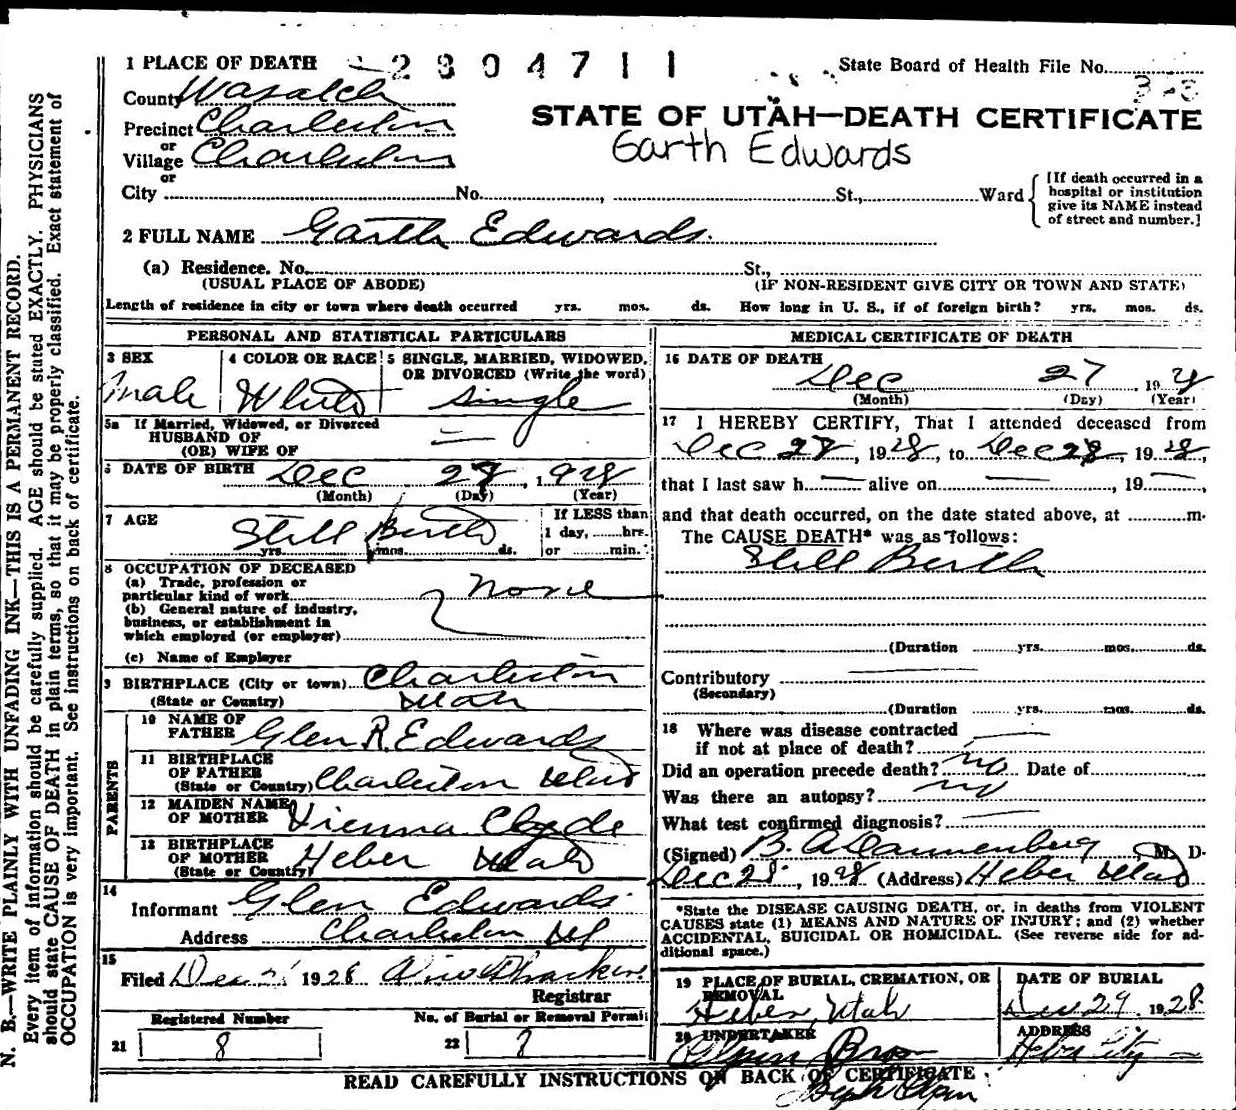 1 PLACE OF DEATH 2804711 State Board of Health File No.
County Wasatch 3-3
STATE OF UTAH—DEATH CERTIFICATE
Precinct Charleston
or
Garth Edwards
Village Charleston
or
City No. , St., Ward
[If death occurred in a
hospital or institution
give its NAME instead
of street and number.]
2 FULL NAME Garth Edwards.
(a) Residence. No. St.,
(USUAL PLACE OF ABODE) (IF NON-RESIDENT GIVE CITY OR TOWN AND STATE)
Length of residence in city or town where death occurred yrs. mos. ds. How long in U. S., if of foreign birth? yrs. mos. ds.
PERSONAL AND STATISTICAL PARTICULARS
3 SEX 4 COLOR OR RACE 5 SINGLE, MARRIED, WIDOWED,
OR DIVORCED (Write the word)
Male White Single
5a If Married, Widowed, or Divorced
HUSBAND OF
(OR) WIFE OF
6 DATE OF BIRTH Dec 27, 1928
(Month) (Day) (Year)
7 AGE Still Birth If LESS than
1 day, hrs.
yrs. mos. ds. or min.
8 OCCUPATION OF DECEASED
(a) Trade, profession or
particular kind of work None
(b) General nature of industry,
business, or establishment in
which employed (or employer)
(c) Name of Employer
9 BIRTHPLACE (City or town) Charleston
(State or Country) Utah
PARENTS
10 NAME OF
FATHER Glen R. Edwards
11 BIRTHPLACE
OF FATHER
(State or Country) Charleston Utah
12 MAIDEN NAME
OF MOTHER Vienna Clyde
13 BIRTHPLACE
OF MOTHER Heber Utah
(State or Country)
14
Informant Glen Edwards
Address Charleston Ut
15
Filed Dec 1928
Registrar
Registered Number No. of Burial or Removal Permit
21 8 22 8
MEDICAL CERTIFICATE OF DEATH
16 DATE OF DEATH
Dec 27, 19
(Month) (Day) (Year)
17 I HEREBY CERTIFY, That I attended deceased from
Dec 28, 1928, to Dec 28, 1928,
that I last saw h alive on , 19 ,
and that death occurred, on the date stated above, at m.
The CAUSE DEATH* was as follows:
Still Berth
(Duration yrs. mos. ds.
Contributory
(Secondary)
(Duration yrs. mos. ds.
18 Where was disease contracted
if not at place of death?
Did an operation precede death? no Date of
Was there an autopsy? no
What test confirmed diagnosis?
(Signed) B. A. Dannenberg, M. D.
Dec 28, 1928 (Address) Heber Utah
*State the DISEASE CAUSING DEATH, or, in deaths from VIOLENT
CAUSES state (1) MEANS AND NATURE OF INJURY; and (2) whether
ACCIDENTAL, SUICIDAL OR HOMICIDAL. (See reverse side for ad-
ditional space.)
19 PLACE OF BURIAL, CREMATION, OR DATE OF BURIAL
REMOVAL
Heber, Utah Dec 29, 1928
20 UNDERTAKER ADDRESS
Olpin Bros Heber City
READ CAREFULLY INSTRUCTIONS ON BACK OF CERTIFICATE
N. B.—WRITE PLAINLY WITH UNFADING INK—THIS IS A PERMANENT RECORD.
Every item of information should be carefully supplied. AGE should be stated EXACTLY. PHYSICIANS
should state CAUSE OF DEATH in plain terms, so that it may be properly classified. Exact statement of
OCCUPATION is very important. See instructions on back of certificate.